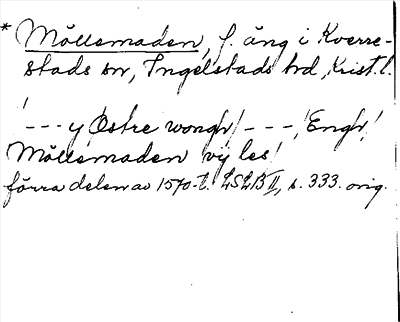 * Möllemaden, f. äng i Kverre-
stads sn, Ingelstads hd, Krist. l.
! - - - y Østre wongh! - - - ! Engh!
Möllemaden vij les!
förra delen av 1570-t. LSLB II, s. 333. orig.